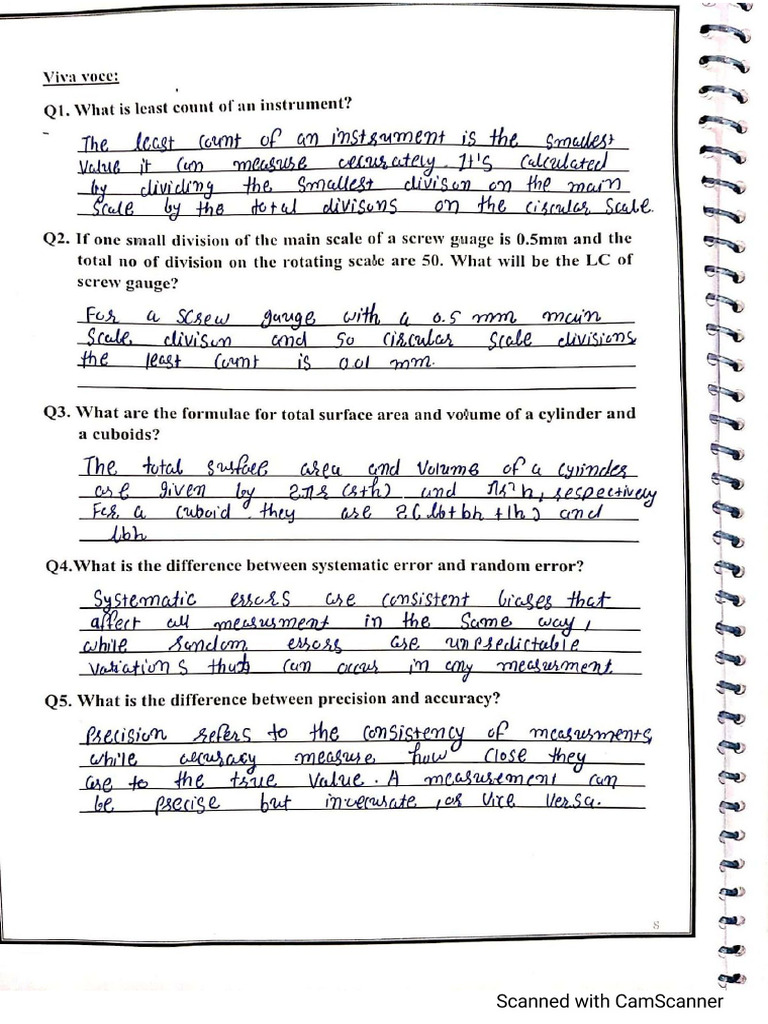 Viva voce:
Q1. What is least count of an instrument?
The least count of an instrument is the smallest
value it can measure accurately. It's calculated
by dividing the smallest divison on the main
scale by the total divisons on the circular scale.
Q2. If one small division of the main scale of a screw guage is 0.5mm and the
total no of division on the rotating scale are 50. What will be the LC of
screw gauge?
For a screw gauge with a 0.5 mm main
scale divison and 50 circular scale divisions
the least count is 0.01 mm.
Q3. What are the formulae for total surface area and volume of a cylinder and
a cuboids?
The total surface area and volume of a cylinder
are given by 2πr (r+h) and πr²h, respectively
For a cuboid they are 2(lb+bh+lh) and
lbh
Q4.What is the difference between systematic error and random error?
Systematic errors are consistent biases that
affect all measurment in the same way,
while random errors are unpredictable
variations that can occur in any measurment.
Q5. What is the difference between precision and accuracy?
Precision refers to the consistency of measurments,
while accuracy measure how close they
are to the true value. A measurement can
be precise but inaccurate, or vice versa.
8
Scanned with CamScanner